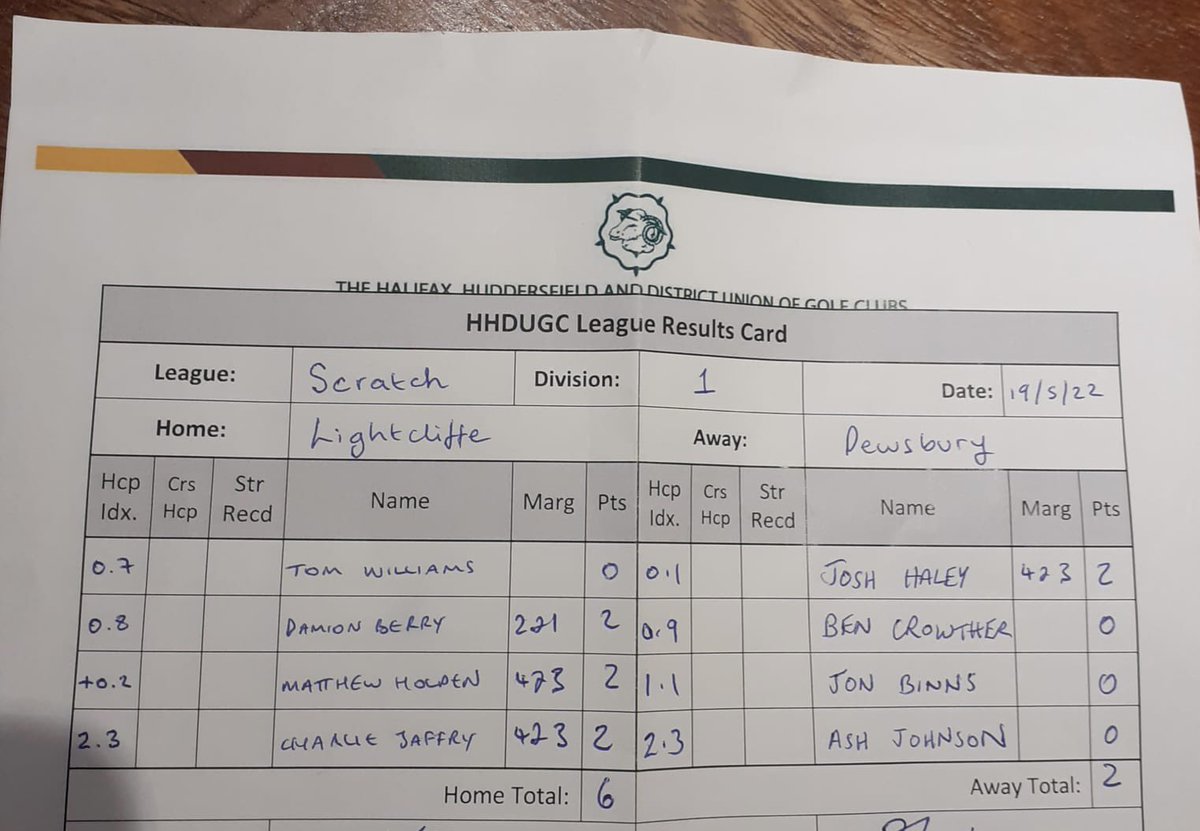 THE HALIFAX, HUDDERSFIELD AND DISTRICT UNION OF GOLF CLUBS
HHDUGC League Results Card
League: Scratch Division: 1 Date: 19/5/22
Home: Lightcliffe Away: Dewsbury
Hcp Idx. Crs Hcp Str Recd Name Marg Pts Hcp Idx. Crs Hcp Str Recd Name Marg Pts
0.7 TOM WILLIAMS 0 0.1 JOSH HALEY 4&3 2
0.8 DAMION BERRY 2&1 2 0.9 BEN CROWTHER 0
+0.2 MATTHEW HOLDEN 4&3 2 1.1 JON BINNS 0
2.3 CHARLIE JAFFRY 4&3 2 2.3 ASH JOHNSON 0
Home Total: 6 Away Total: 2